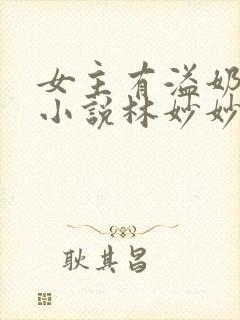 女主有溢奶
小说林妙妙
耿其昌